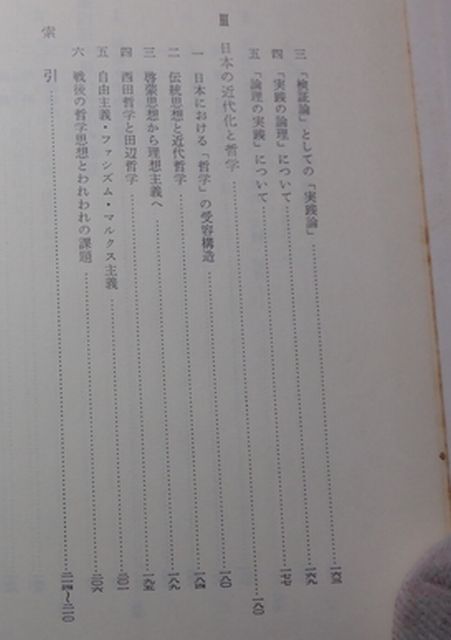 三 「検証論」としての「実践論」……一六三
四 「実践の論理」について……一六九
五 「論理の実践」について……一七七
Ⅲ 日本の近代化と哲学……一八〇
一 日本における「哲学」の受容構造……一八〇
二 伝統思想と近代哲学……一八四
三 啓蒙思想から理想主義へ……一八九
四 西田哲学と田辺哲学……一九五
五 自由主義・ファシズム・マルクス主義……二〇一
六 戦後の哲学思想とわれわれの課題……二〇六
索引……二一四〜二一〇